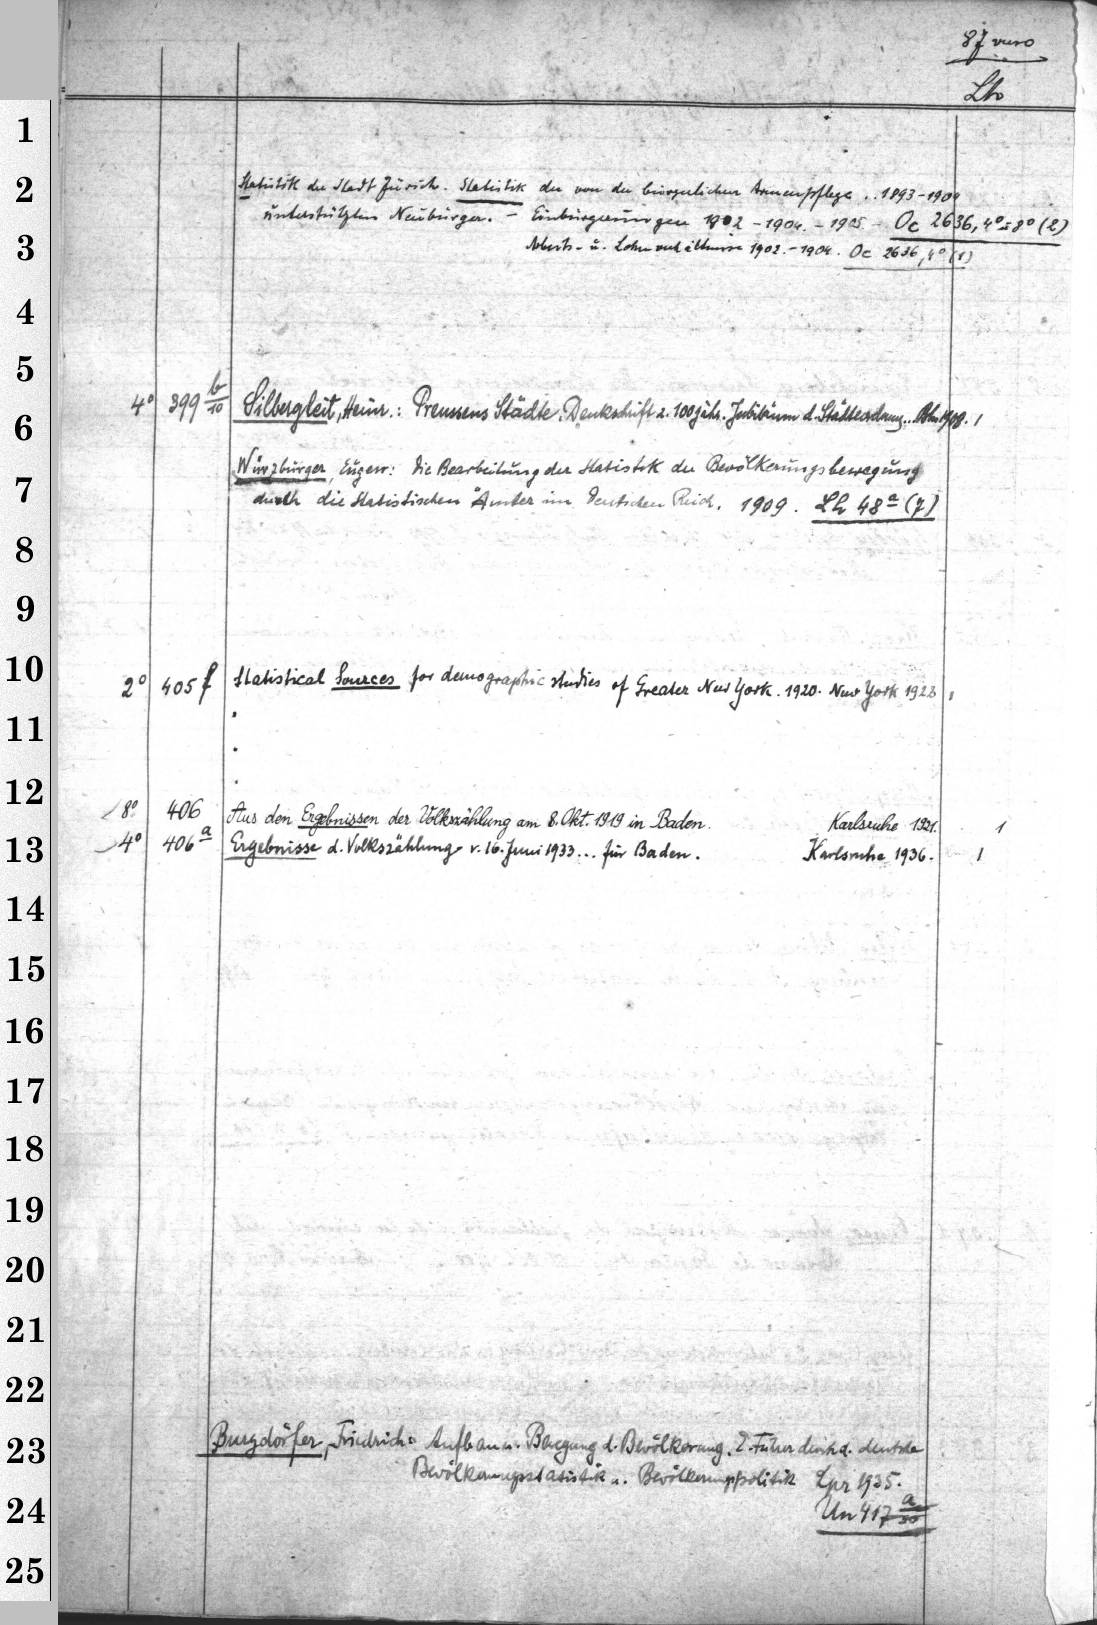 87 verso
Lh
1
2
3
4
5
6
7
8
9
10
11
12
13
14
15
16
17
18
19
20
21
22
23
24
25
Statistik der Stadt Zürich. Statistik der von der bürgerlichen Armenpflege .. 1893-1900
unterstützten Neubürger. - Einbürgerungen 1902 - 1904. - 1905 - Oc 2636, 4°=8° (2)
Arbeits- u. Lohnverhältnisse 1902. - 1904. Oc 2636, 4° (1)
4° 399 b/10 Silbergleit, Heinr.: Preussens Städte. Denkschrift z. 100jähr. Jubiläum d. Städteordnung.. Bln 1908. 1
Würzburger, Eugen: Die Bearbeitung der Statistik der Bevölkerungsbewegung
durch die Statistischen Ämter im Deutschen Reich. 1909. Lh 48a (7)
2° 405 f Statistical Sources for demographic studies of Greater New York. 1920. New York 1923 1
8° 406 Aus den Ergebnissen der Volkszählung am 8. Okt. 1919 in Baden. Karlsruhe 1921. 1
4° 406a Ergebnisse d. Volkszählung v. 16. Juni 1933... für Baden. Karlsruhe 1936. 1
Burgdörfer, Friedrich: Aufbau u. Bewegung d. Bevölkerung. E. Führer durch d. deutsche
Bevölkerungsstatistik u. Bevölkerungspolitik Lpz 1935.
Un 417